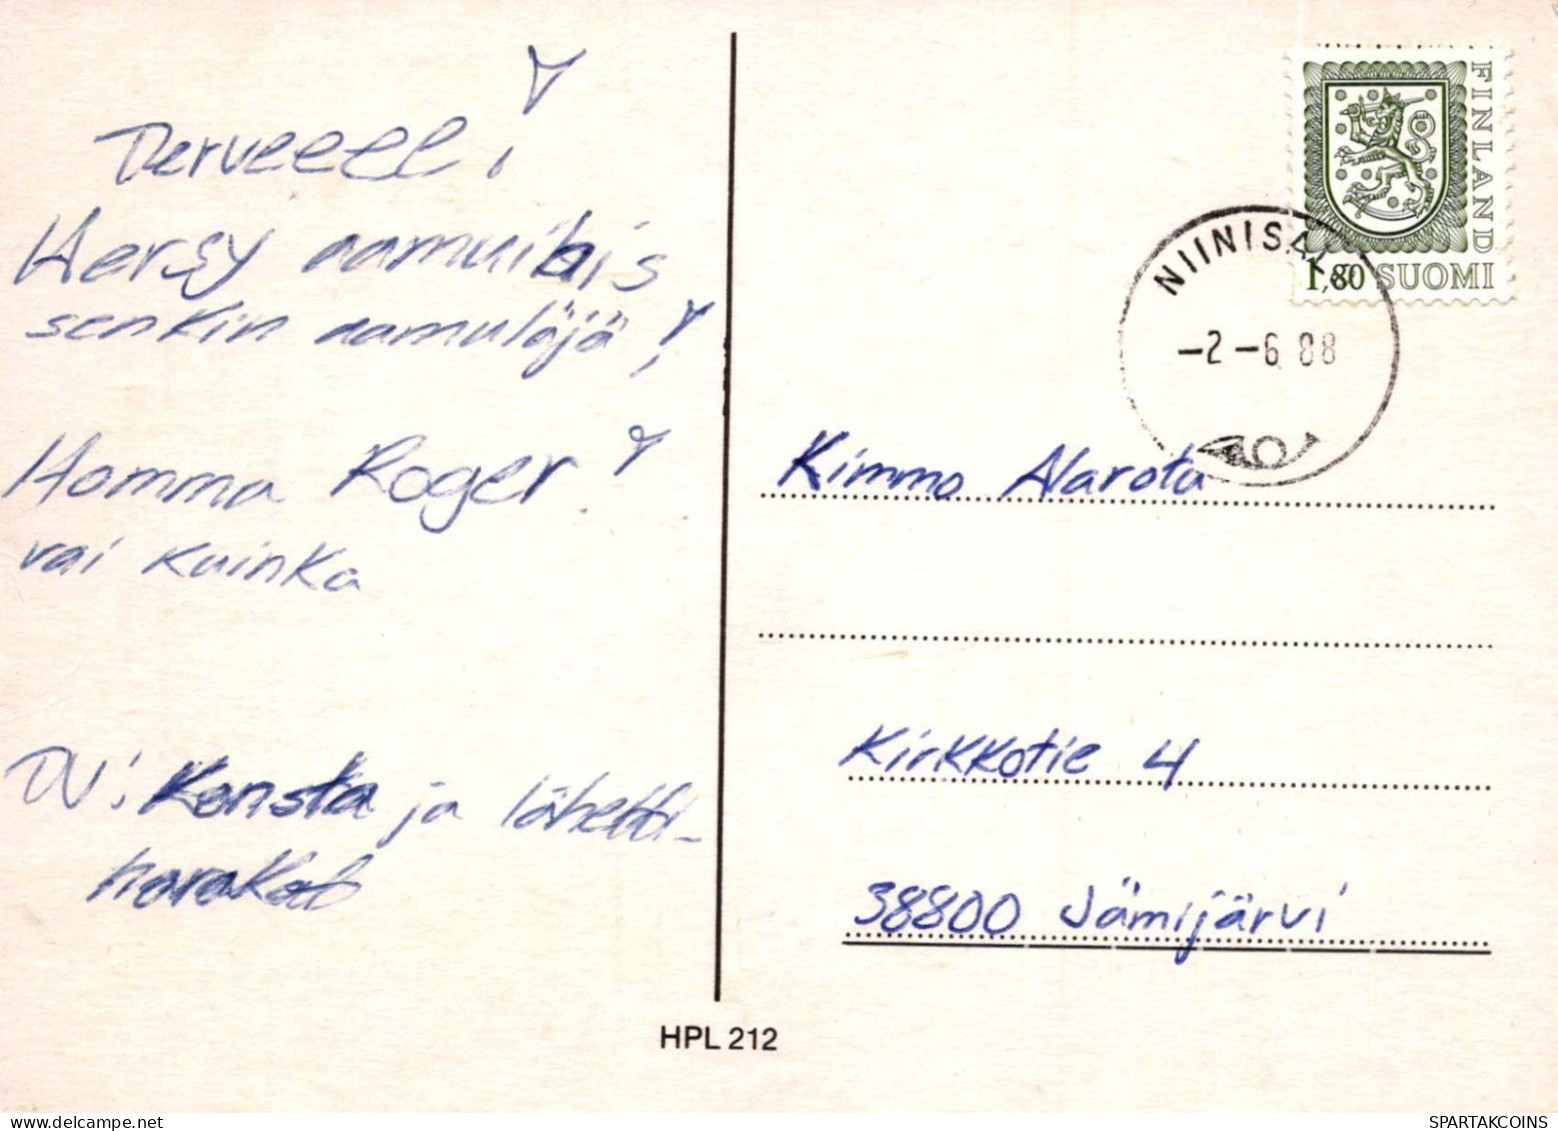 Terveeell!
Hersy aamuibis
senkin aamulöjjä!
Homma Roger?
vai kuinka
TV: Konsta ja lähetti-
harakat
FINLAND
1,80 SUOMI
NIINISALO
-2-6.88
Kimmo Alarota
Kirkkotie 4
38800 Jämijärvi
HPL 212
SPARTAKCOINS